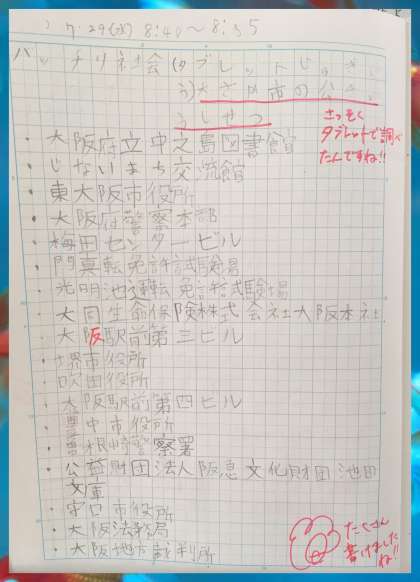 7.29(水) 8:40～8:55
バッチリ社会(タブレットじゅぎょう)大さか市の公公
しせつ
さっそく
タブレットで調べ
たんですね!!
・大阪府立中之島図書館
・じないまち交流館
・東大阪市役所
・大阪府警察本部
・梅田センタービル
・門真運転免許試験場
・光明池運転免許試験場
・大同生命保険株式会社大阪本社
・大阪駅前第三ビル
・堺市役所
・吹田役所
・大阪駅前第四ビル
・豊中市役所
・曽根崎警察署
・公益財団法人阪急文化財団池田
文庫
・守口市役所
・大阪法務局
・大阪地方裁判所
たくさん
書けました
ね!!